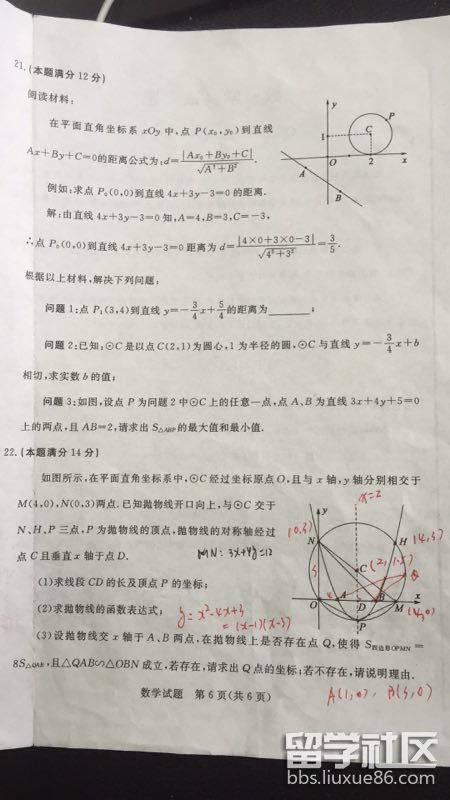 21.(本题满分12分)
阅读材料:
在平面直角坐标系 xOy 中,点 P(x₀,y₀)到直线
Ax+By+C=0的距离公式为:d=|Ax₀+By₀+C|/√(A²+B²).
例如:求点 P₀(0,0)到直线 4x+3y-3=0 的距离.
解:由直线 4x+3y-3=0 知,A=4,B=3,C=-3,
∴点 P₀(0,0)到直线 4x+3y-3=0 距离为 d=|4×0+3×0-3|/√(4²+3²)=3/5.
根据以上材料,解决下列问题:
问题 1:点 P₁(3,4)到直线 y=-3/4x+5/4的距离为______;
问题 2:已知:⊙C 是以点 C(2,1)为圆心,1 为半径的圆,⊙C 与直线 y=-3/4x+b
相切,求实数 b 的值;
问题 3:如图,设点 P 为问题 2 中⊙C 上的任意一点,点 A、B 为直线 3x+4y+5=0
上的两点,且 AB=2,请求出 S△ABP的最大值和最小值.
y
P
1
C
O
2
x
A
B
22.(本题满分14分)
如图所示,在平面直角坐标系中,⊙C 经过坐标原点 O,且与 x 轴,y 轴分别相交于
M(4,0),N(0,3)两点.已知抛物线开口向上,与⊙C 交于
N、H、P 三点,P 为抛物线的顶点,抛物线的对称轴经过
点 C 且垂直 x 轴于点 D.
MN: 3x+4y=12
(1)求线段 CD 的长及顶点 P 的坐标;
(2)求抛物线的函数表达式;
y=x²-4x+3
=(x-1)(x-3)
(3)设抛物线交 x 轴于 A、B 两点,在抛物线上是否存在点 Q,使得 S四边形OPMN=
8S△QAB,且△QAB∽△OBN 成立,若存在,请求出 Q 点的坐标;若不存在,请说明理由.
x=2
y
(0,3)
N
H
(4,3)
C
(2,1.5)
Q
3
4
O
A
D
B
M
x
(4,0)
P
A(1,0), B(3,0)
数学试题 第 6 页(共 6 页)
留学社区
bbs.liuxue86.com